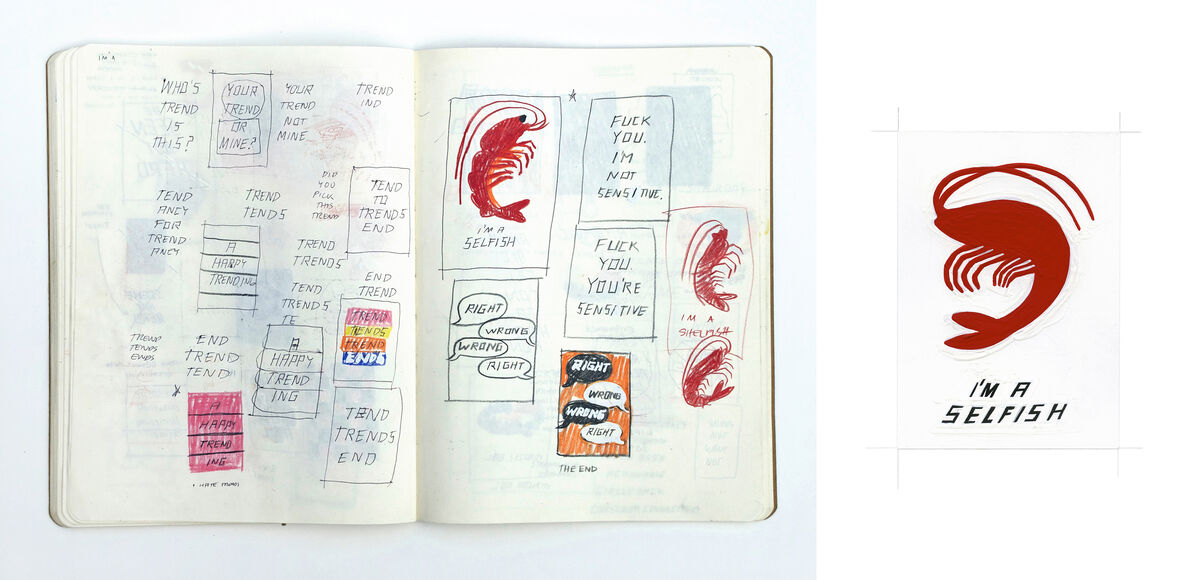 I'M A
WHO'S
TREND
IS
THIS?
YOUR
TREND
OR
MINE?
YOUR
TREND
NOT
MINE
TREND
IND
TEND
ANCY
FOR
TREND
ANCY
TREND
TENDS
DID
YOU
PICK
THIS
TREND
TEND
TO
TRENDS
END
A
HAPPY
TRENDING
TREND
TRENDS
END
TREND
TEND
TRENDS
TE
TREND
TENDS
TREND
ENDS
TREND
TENDS
ENDS
END
TREND
TEND
A
HAPPY
TREND
ING
A
HAPPY
TREND
ING
TEND
TRENDS
END
I'M A
SELFISH
FUCK
YOU.
I'M
NOT
SENSITIVE.
FUCK
YOU.
YOU'RE
SENSITIVE
RIGHT
WRONG
WRONG
RIGHT
I'M A
SHELFISH
RIGHT
WRONG
WRONG
RIGHT
THE END
I'M A
SELFISH